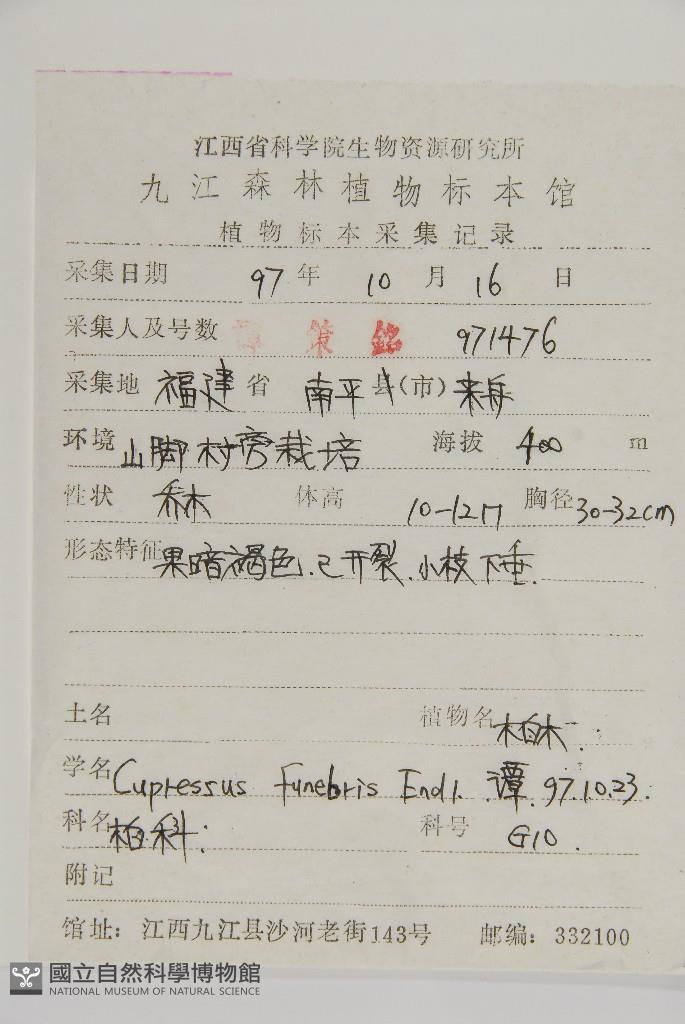 江西省科学院生物资源研究所
九江森林植物标本馆
植物标本采集记录
采集日期 97 年 10 月 16 日
采集人及号数 策銘 971476
采集地 福建 省 南平 县(市) 来舟
环境 山脚村旁栽培 海拔 400 m
性状 乔木 体高 10-12m 胸径 30-32cm
形态特征 果暗褐色.已开裂.小枝下垂.
土名 植物名 柏木.
学名 Cupressus Funebris Endl. 谭 97.10.23.
科名 柏科. 科号 G10.
附记
馆址：江西九江县沙河老街143号 邮编：332100
國立自然科學博物館
NATIONAL MUSEUM OF NATURAL SCIENCE